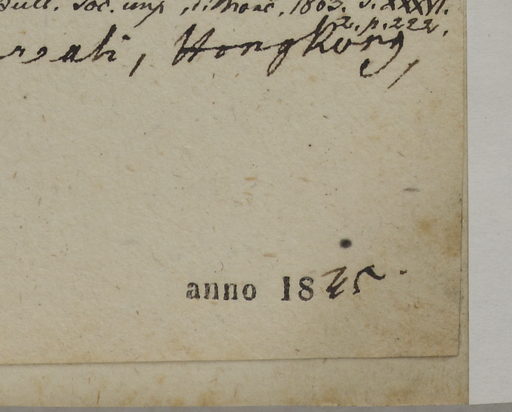 Bull. Soc. imp. d. Mosc. 1863. T. XXXVI.
2. p. 222.
Hongkong,
anno 1845.